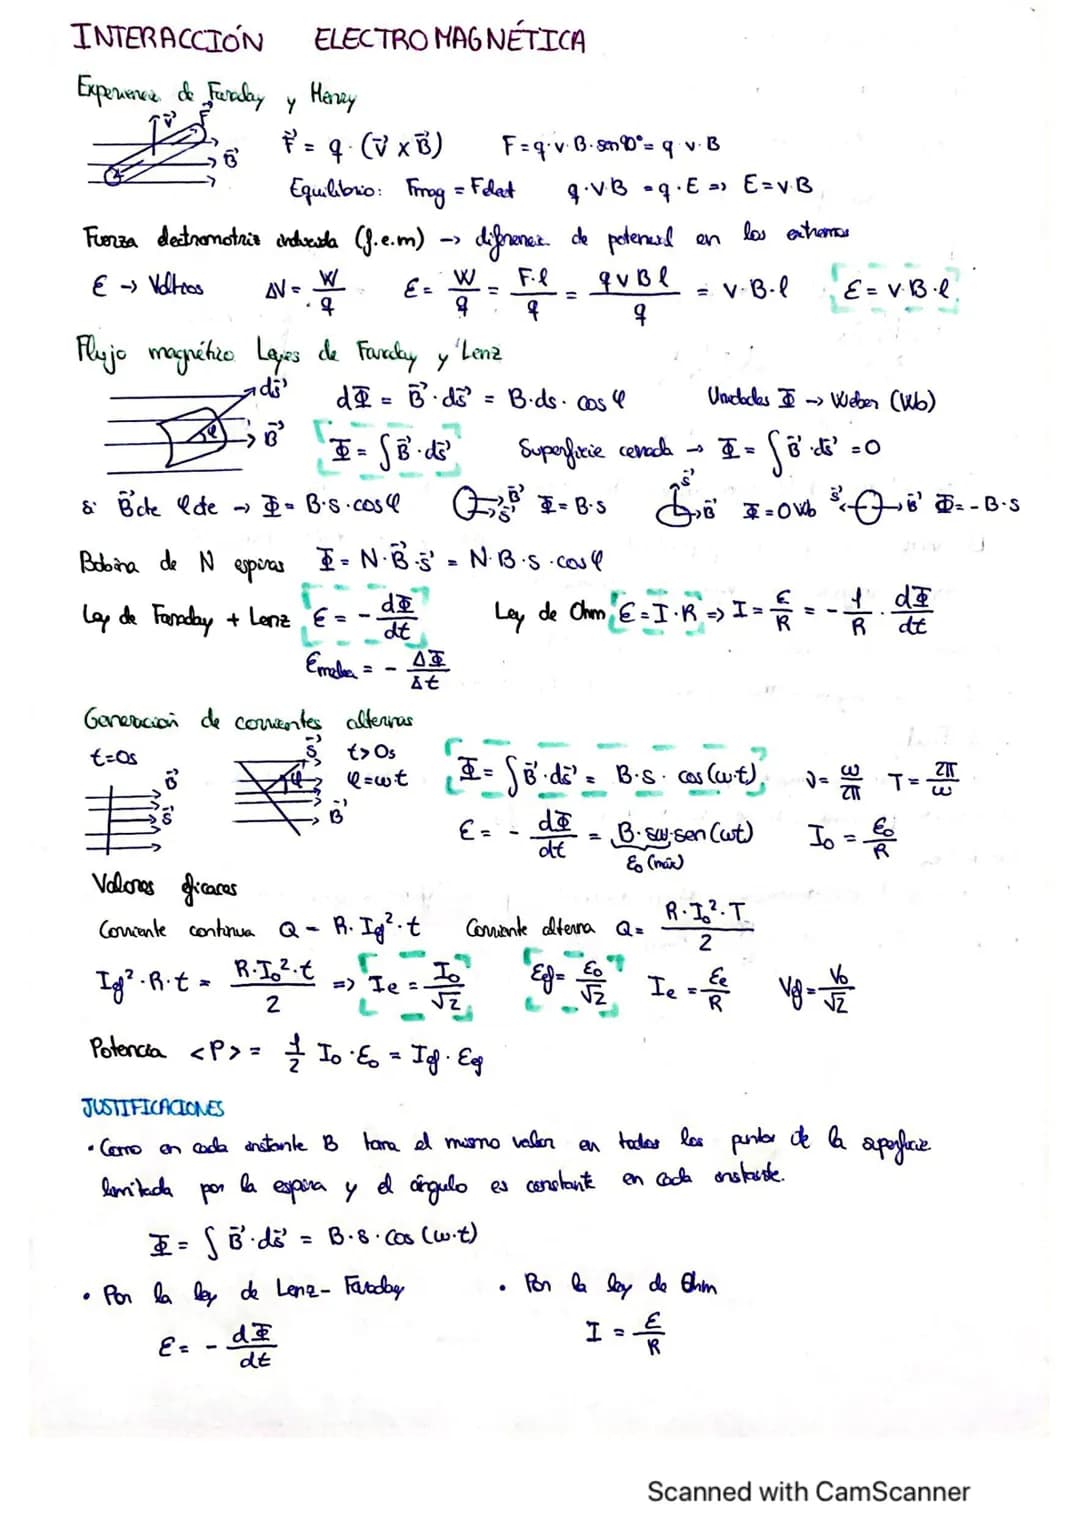 INTERACCIÓN ELECTROMAGNÉTICA
Experiencia de Faraday y Henry
v⃗ F B⃗ F⃗ = q · (v⃗ x B⃗) F = q·v·B·sen90° = q·v·B
Equilibrio: Fmag = Felect q·v·B = q·E => E = v·B
Fuerza electromotriz inducida (f.e.m) -> diferencia de potencial en los extremos
ε -> Voltios ΔV = W/q ε = W/q = F·l/q = qvBl/q = v·B·l ε = v·B·l
Flujo magnético. Leyes de Faraday y Lenz
ds⃗ φ B⃗ dΦ = B⃗·ds⃗ = B·ds·cosφ Unidades Φ -> Weber (Wb)
Φ = ∫B⃗·ds⃗ Superficie cerrada -> Φ = ∫B⃗·ds⃗ = 0
Si B⃗cte φcte -> Φ = B·s·cosφ B⃗ s⃗ Φ = B·s s⃗ B⃗ Φ = 0Wb s⃗ B⃗ Φ = -B·s
Bobina de N espiras Φ = N·B⃗·s⃗ = N·B·s·cosφ
Ley de Faraday + Lenz ε = - dΦ/dt Ley de Ohm ε = I·R => I = ε/R = - 1/R · dΦ/dt
εmedia = - ΔΦ/Δt
Generación de corrientes alternas
t=0s B⃗ s⃗ s⃗ φ B⃗ t>0s φ=ωt Φ = ∫B⃗·ds⃗ = B·s·cos(ωt) ν = ω/2π T = 2π/ω
ε = - dΦ/dt = B·sω·sen(ωt) I₀ = ε₀/R
ε₀ (máx)
Valores eficaces
Corriente continua Q = R·Ief²·t Corriente alterna Q = R·I₀²·T/2
Ief²·R·t = R·I₀²·t/2 => Ie = I₀/√2 εef = ε₀/√2 Ie = εe/R Vef = V₀/√2
Potencia <P> = 1/2 I₀·ε₀ = Ief·εef
JUSTIFICACIONES
• Como en cada instante B toma el mismo valor en todos los puntos de la superficie
limitada por la espira y el ángulo es constante en cada instante.
Φ = ∫B⃗·ds⃗ = B·s·cos(ω·t)
• Por la ley de Lenz-Faraday • Por la ley de Ohm
ε = - dΦ/dt I = ε/R
Scanned with CamScanner